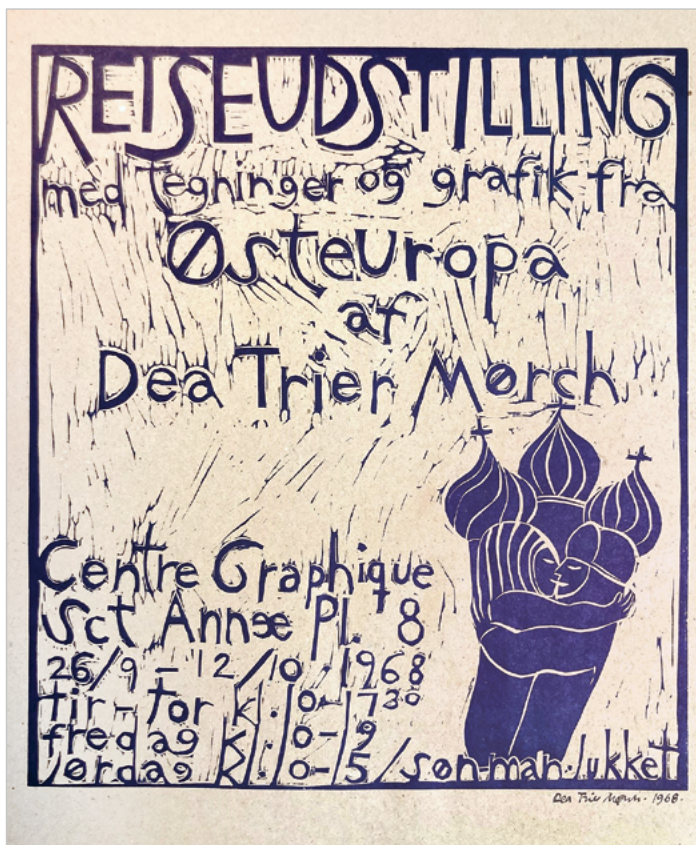 REJSEUDSTILLING
med tegninger og grafik fra
Østeuropa
af
Dea Trier Mørch
Centre Graphique
Sct Annæ Pl. 8
26/9 - 12/10 1968
tir-tor kl. 10-17³⁰
fredag kl. 10-9
lørdag kl. 10-5 / søn-man-lukket
Dea Trier Mørch. 1968.